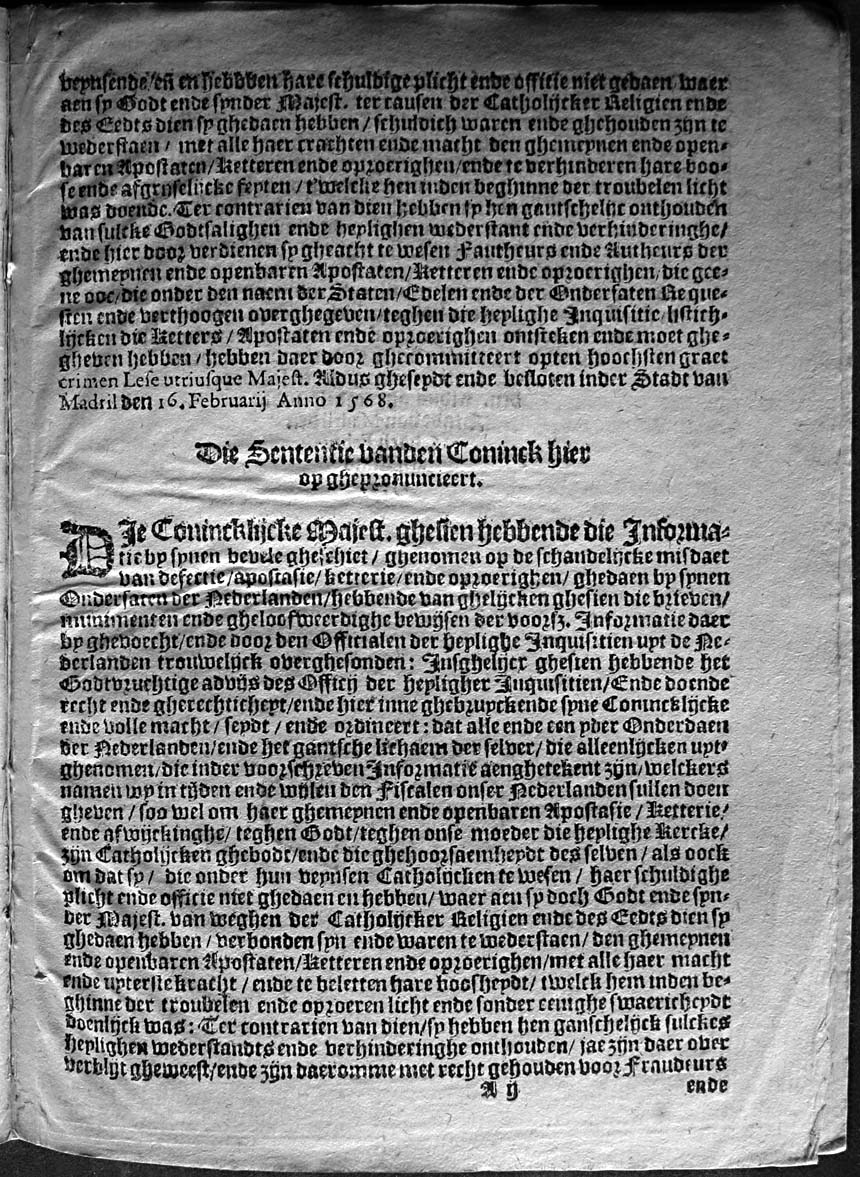 veynsende/eñ en hebbben hare schuldige plicht ende officie niet gedaen/waer
aen sy Godt ende synder Majest. ter causen der Catholijcker Religien ende
des Eedts dien sy ghedaen hebben / schuldich waren ende ghehouden zijn te
wederstaen / met alle haer crachten ende macht den ghemeynen ende open-
baren Apostaten/Ketteren ende oproerighen/ende te verhinderen hare boo-
se ende afgrijselijcke seyten / t'welcke hen inden beghinne der troubelen licht
was doende. Ter contrarien van dien hebben sy hen gantschelijc onthouden
van sulcke Godtsalighen ende heylighen wederstant ende verhinderinghe/
ende hier door verdienen sy gheacht te wesen Fautheurs ende Autheurs der
ghemeynen ende openbaren Apostaten/Ketteren ende oproerighen/die gee-
ne ooc/die onder den naem der Staten/Edelen ende der Ondersaten Reque-
sten ende verthoogen overghegeven/teghen die heylighe Inquisitie/listich-
lijcken die Ketters / Apostaten ende oproerighen ontsteken ende moet ghe-
gheven hebben / hebben daer door ghecommitteert opten hoochsten graet
crimen Lese utriusque Majest. Aldus gheseydt ende besloten inder Stadt van
Madril den 16. Februarij Anno 1568.
Die Sententie vanden Coninck hier
op ghepronuncieert.
DIe Conincklijcke Majest. ghesien hebbende die Informa-
tie by synen bevele gheschiet / ghenomen op de schandelijcke misdaet
van defectie/apostasie/ketterie/ende oproerighen/ghedaen by synen
Ondersaten der Nederlanden/hebbende van ghelijcken ghesien die brieven/
munimenten ende gheloofweerdighe bewijsen der voorsz. Informatie daer
by ghevoecht/ende door den Officialen der heylighe Inquisitien uyt de Ne-
derlanden trouwelijck overghesonden: Insghelijcx ghesien hebbende het
Godtvruchtige advijs des Officij der heyligher Inquisitien/Ende doende
recht ende gherechticheyt/ende hier inne ghebruyckende syne Conincklijcke
ende volle macht / seydt / ende ordineert: dat alle ende een yder Onderdaen
der Nederlanden/ende het gantsche lichaem der selver/die alleenlijcken uyt-
ghenomen/die inder voorschreven Informatie aenghetekent zijn/welckers
namen wy in tijden ende wijlen den Fiscalen onser Nederlanden sullen doen
gheven / soo wel om haer ghemeynen ende openbaren Apostasie / Ketterie/
ende afwijckinghe/teghen Godt/teghen onse moeder die heylighe Kercke/
zijn Catholijcken ghebodt/ende die ghehoorsaemheydt des selven / als oock
om dat sy / die onder hun veynsen Catholijcken te wesen / haer schuldighe
plicht ende officie niet ghedaen en hebben/waer aen sy doch Godt ende syn-
der Majest. van weghen der Catholijcker Religien ende des Eedts dien sy
ghedaen hebben / verbonden syn ende waren te wederstaen/den ghemeynen
ende openbaren Apostaten/Ketteren ende oproerighen/met alle haer macht
ende uyterste kracht / ende te beletten hare boosheydt / twelck hem inden be-
ghinne der troubelen ende oproeren licht ende sonder eenighe swaericheydt
doenlijck was: Ter contrarien van dien/sy hebben hen ganschelijck sulckes
heylighen wederstandts ende verhinderinghe onthouden/jae zijn daer over
verblijt gheweest/ende zijn daeromme met recht gehouden voor Fraudeurs
A ij ende